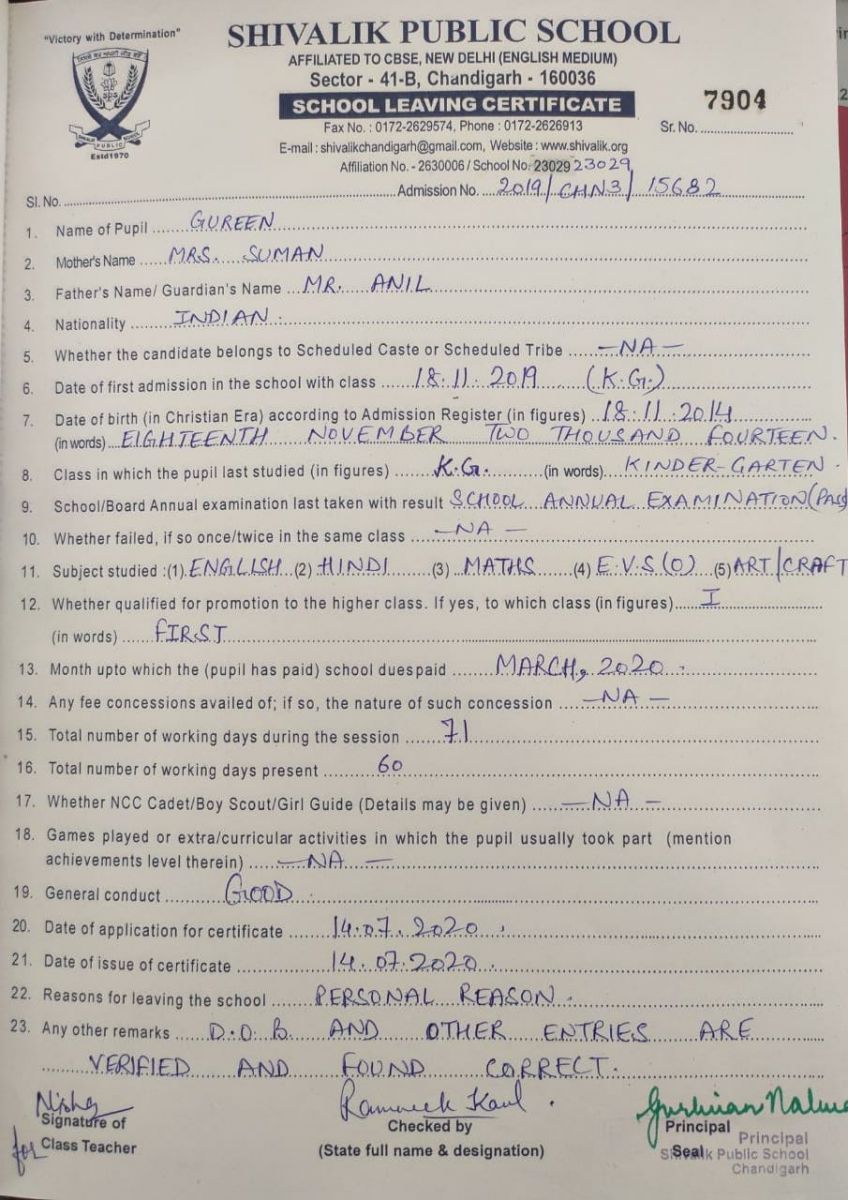 "Victory with Determination"
SHIVALIK PUBLIC SCHOOL
AFFILIATED TO CBSE, NEW DELHI (ENGLISH MEDIUM)
Sector - 41-B, Chandigarh - 160036
SCHOOL LEAVING CERTIFICATE
7904
Fax No. : 0172-2629574, Phone : 0172-2626913
Sr. No. ......................
E-mail : shivalikchandigarh@gmail.com, Website : www.shivalik.org
SHIVALIK PUBLIC SCHOOL
Estd1970
Affiliation No. - 2630006 / School No. 23029 23029
Sl. No. ........ Admission No. ...2019/CHN3/15682
1. Name of Pupil ...... GUREEN
2. Mother's Name ..... MRS. SUMAN
3. Father's Name/ Guardian's Name ... MR. ANIL
4. Nationality ........ INDIAN.
5. Whether the candidate belongs to Scheduled Caste or Scheduled Tribe ..... —NA—
6. Date of first admission in the school with class ..... 18.11.2019 (K.G.)
7. Date of birth (in Christian Era) according to Admission Register (in figures) .. 18.11.2014
(in words) .. EIGHTEENTH NOVEMBER TWO THOUSAND FOURTEEN.
8. Class in which the pupil last studied (in figures) ...... K.G. ...... (in words).. KINDER-GARTEN.
9. School/Board Annual examination last taken with result SCHOOL ANNUAL EXAMINATION (Pass)
10. Whether failed, if so once/twice in the same class ...... —NA—
11. Subject studied :(1). ENGLISH (2) HINDI (3) MATHS (4) E.V.S (O) (5) ART/CRAFT
12. Whether qualified for promotion to the higher class. If yes, to which class (in figures)..... I
(in words) ..... FIRST
13. Month upto which the (pupil has paid) school duespaid ........ MARCH, 2020.
14. Any fee concessions availed of; if so, the nature of such concession ..... —NA—
15. Total number of working days during the session ...... 71
16. Total number of working days present ......... 60
17. Whether NCC Cadet/Boy Scout/Girl Guide (Details may be given) ..... —NA—
18. Games played or extra/curricular activities in which the pupil usually took part (mention
achievements level therein) ..... —NA—
19. General conduct .......... GOOD.
20. Date of application for certificate ....... 14.07.2020.
21. Date of issue of certificate .............. 14.07.2020.
22. Reasons for leaving the school ........ PERSONAL REASON.
23. Any other remarks ..... D.O.B. AND OTHER ENTRIES ARE
VERIFIED AND FOUND CORRECT.
Signature of
for Class Teacher
Checked by
(State full name & designation)
Principal
Seal
Principal
Shivalik Public School
Chandigarh